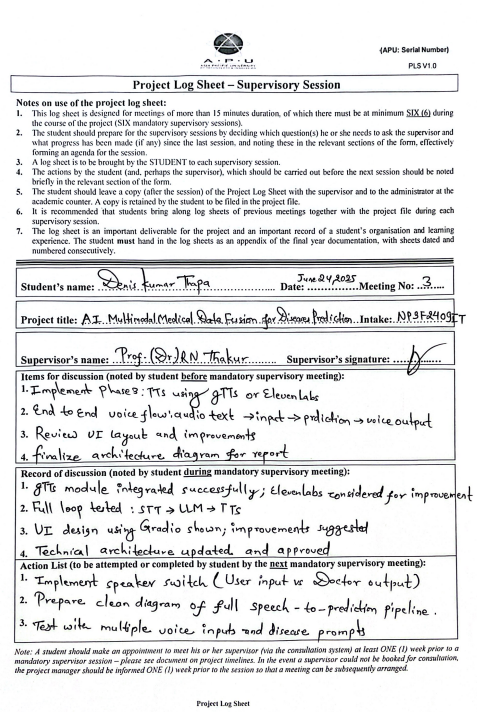 (APU: Serial Number)
A · P · U
ASIA PACIFIC UNIVERSITY
PLS V1.0
Project Log Sheet – Supervisory Session
Notes on use of the project log sheet:
1. This log sheet is designed for meetings of more than 15 minutes duration, of which there must be at minimum SIX (6) during
the course of the project (SIX mandatory supervisory sessions).
2. The student should prepare for the supervisory sessions by deciding which question(s) he or she needs to ask the supervisor and
what progress has been made (if any) since the last session, and noting these in the relevant sections of the form, effectively
forming an agenda for the session.
3. A log sheet is to be brought by the STUDENT to each supervisory session.
4. The actions by the student (and, perhaps the supervisor), which should be carried out before the next session should be noted
briefly in the relevant section of the form.
5. The student should leave a copy (after the session) of the Project Log Sheet with the supervisor and to the administrator at the
academic counter. A copy is retained by the student to be filed in the project file.
6. It is recommended that students bring along log sheets of previous meetings together with the project file during each
supervisory session.
7. The log sheet is an important deliverable for the project and an important record of a student's organisation and learning
experience. The student must hand in the log sheets as an appendix of the final year documentation, with sheets dated and
numbered consecutively.
Student's name: Denis Kumar Thapa Date: June 24, 2025 Meeting No: 3
Project title: A.I. Multimodal Medical Data Fusion for Disease Prediction Intake: NP3F2409IT
Supervisor's name: Prof. (Dr) RN Thakur Supervisor's signature:
Items for discussion (noted by student before mandatory supervisory meeting):
1. Implement Phase 3: TTs using gTTs or ElevenLabs
2. End to End voice flow: audio text → input → prdiction → voice output
3. Review UI layout and improvements
4. finalize architecture diagram for report
Record of discussion (noted by student during mandatory supervisory meeting):
1. gTTs module integrated successfully; Elevenlabs considered for improvement
2. Full loop tested: STT → LLM → TTs
3. UI design using Gradio shown; improvements suggested
4. Technical architecture updated and approved
Action List (to be attempted or completed by student by the next mandatory supervisory meeting):
1. Implement speaker switch (User input vs Doctor output)
2. Prepare clean diagram of full speech-to-prediction pipeline.
3. Test with multiple voice inputs and disease prompts
Note: A student should make an appointment to meet his or her supervisor (via the consultation system) at least ONE (1) week prior to a
mandatory supervisor session – please see document on project timelines. In the event a supervisor could not be booked for consultation,
the project manager should be informed ONE (1) week prior to the session so that a meeting can be subsequently arranged.
Project Log Sheet